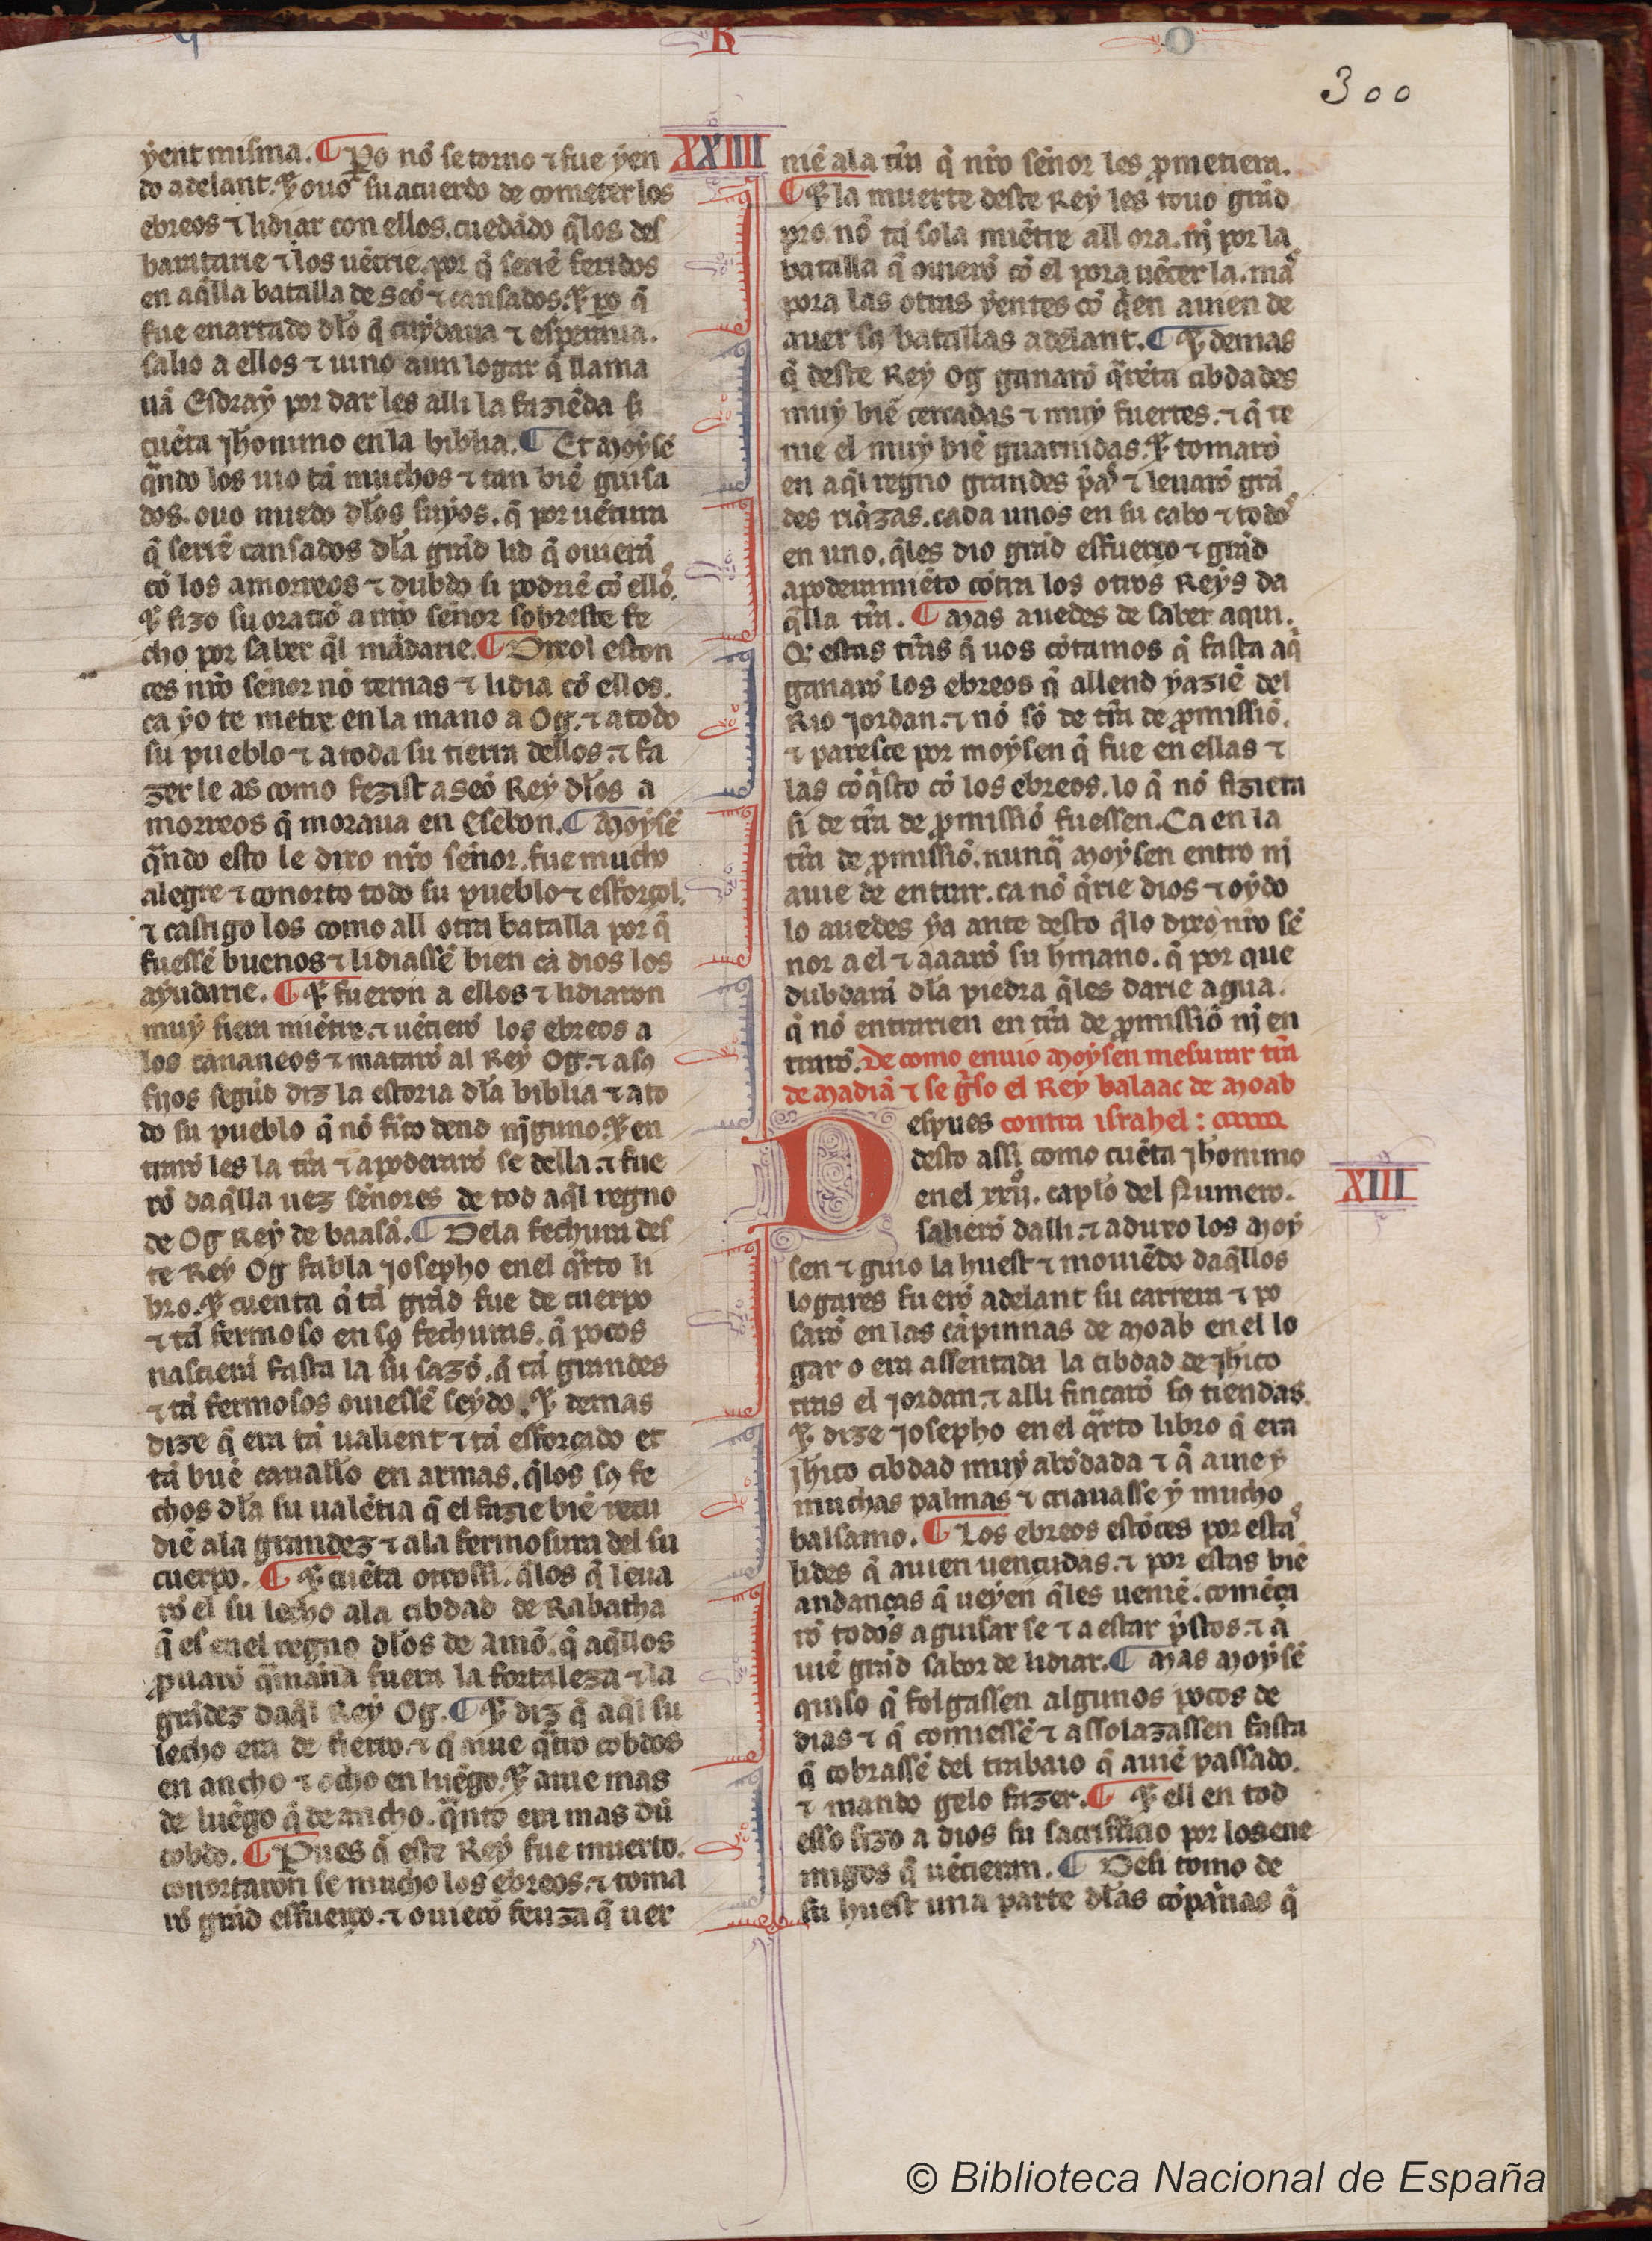 R
O
300
XXIIII
yent misma. ¶ P̱o nõ se torno ⁊ fue yen
do adelant. ⁊ ouo su acuerdo de cometer los
ebreos ⁊ lidiar con ellos. cuedãdo q̃los des
baratarie ⁊ los uẽcrie. por q̃ seriẽ feridos
en aq̃lla batalla de seõ ⁊ cansados. ⁊ po q̃
fue enartado dl̃o q̃ cuydaua ⁊ esperaua.
salio a ellos ⁊ uino a un logar q̃ llama
uã Esdray por dar les alli la faziẽda si
cuẽta jhonimo en la biblia. ¶ Et Moysẽ
q̃ndo los uio tã muchos ⁊ tan biẽ guisa
dos. ouo miedo dl̃os suyos. q̃ por uẽtura
q̃ seriẽ cansados dl̃a grãd lid q̃ ouierã
cõ los amorreos ⁊ dubdo si podriẽ cõ ellõ.
⁊ fizo su oratiõ a nr̃o sẽnor sobreste fe
cho por saber q̃l mãdarie. ¶ Dixol eston
ces nr̃o sẽnor nõ temas ⁊ lidia cõ ellos.
ca yo te metre en la mano a Og. ⁊ a todo
su pueblo ⁊ a toda su tierra dellos. ⁊ fa
zer le as como fezist a seõ Rey dl̃os a
morreos q̃ moraua en Esebon. ¶ Moysẽ
q̃ndo esto le dixo nr̃o sẽnor. fue mucho
alegre ⁊ conorto todo su pueblo ⁊ esforçol.
⁊ castigo los como all otra batalla por q̃
fuessẽ buenos ⁊ lidiassẽ bien ca dios los
ayudarie. ¶ ⁊ fueron a ellos ⁊ lidiaron
muy fiera miẽtre. ⁊ uẽcierõ los ebreos a
los cananeos ⁊ matarõ al Rey Og. ⁊ a sꝯ
fijos segũd diz la estoria dl̃a biblia ⁊ a to
do su pueblo q̃ nõ fico dend nj̃guno. ⁊ en
trarõ les la tr̃a ⁊ apoderarõ se della. ⁊ fue
rõ daq̃lla uez sẽnores de tod aq̃l regno
de Og Rey de baasã. ¶ Dela fechura des
te Rey Og fabla Josepho enel q̃rto li
bro. ⁊ cuenta q̃ tã grãd fue de cuerpo
⁊ tã fermoso en sꝯ fechuras. q̃ pocos
nascierã fasta la su sazõ. q̃ tã grandes
⁊ tã fermosos ouiessẽ seydo. ⁊ demas
dize q̃ era tã ualient ⁊ tã esforçado et
tã buẽ cauallo en armas. q̃los sꝯ fe
chos dl̃a su ualẽtia q̃ el fazie biẽ recu
diẽ ala grandez ⁊ ala fermosura del su
cuerpo. ¶ ⁊ cuẽta otrossi. q̃los q̃ leua
rõ el su lecho ala cibdad de Rabatha
q̃ es enel regno dl̃os de amõ. q̃ aq̃llos
ꝓuarõ q̃mãna fuera la fortaleza ⁊ la
grãdez daq̃l Rey Og. ¶ ⁊ diz q̃ aq̃l su
lecho era de fierro. ⁊ q̃ auie q̃tro cobdos
en ancho ⁊ ocho en luẽgo. ⁊ auie mas
de luẽgo q̃ de ancho. q̃nto era mas dũ
cobdo. ¶ Pues q̃ este Rey fue muerto.
conortaron se mucho los ebreos. ⁊ toma
rõ grãd esfuerço. ⁊ ouierõ feuza q̃ uer
niẽ ala tr̃a q̃ nr̃o sẽnor les ꝓmetiera.
¶ ⁊ la muerte deste Rey les touo grãd
pro. nõ tã sola miẽtre all ora. nj̃ por la
batalla q̃ ouierõ cõ el pora uẽcer la. ma᷒
pora las otras yentes cõ q̃en auien de
auer sꝯ batallas adelant. ¶ ⁊ demas
q̃ deste Rey Og ganarõ q̃rẽta cibdades
muy biẽ cercadas ⁊ muy fuertes. ⁊ q̃ te
nie el muy biẽ guarnidas. ⁊ tomarõ
en aq̃l regno grandes p̃a᷒ ⁊ leuarõ grã
des riq̃zas. cada unos en su cabo ⁊ todo᷒
en uno. q̃les dio grãd esfuerço ⁊ grãd
apoderamiẽto cõtra los otros Reys da
q̃lla tr̃a. ¶ Mas auedes de saber aqui.
Q̃ estas tr̃as q̃ uos cõtamos q̃ fasta aq̃
ganarõ los ebreos q̃ allend yaziẽ del
Rio Jordan. ⁊ nõ sõ de tr̃a de ꝓmissiõ.
⁊ paresce por moysen q̃ fue en ellas ⁊
las cõq̃sto cõ los ebreos. lo q̃ nõ fiziera
si de tr̃a de ꝓmissiõ fuessen. Ca en la
tr̃a de ꝓmissiõ. nunq̃ Moysen entro nj̃
auie de entrar. ca nõ q̃rie dios ⁊ oydo
lo auedes ya ante desto q̃lo dixo nr̃o sẽ
nor a el ⁊ a aarõ su hmano. q̃ por que
dubdarã dl̃a piedra q̃les darie agua.
q̃ nõ entrarien en tr̃a de ꝓmissiõ nj̃ en
trarõ. De como enuio Moysen mesurar tr̃a
de Madiã ⁊ se q̃so el Rey balaac de Moab
Despues contra israhel:
desto assi como cuẽta jhonimo
en el xxij. caplo del Numero.
XIII
salierõ dalli. ⁊ aduxo los Moy
sen ⁊ guio la huest ⁊ mouiẽdo daq̃llos
logares fuerõ adelant su carrera ⁊ po
sarõ en las cãpinnas de Moab en el lo
gar o era assentada la cibdad de jhico
tras el Jordan. ⁊ alli fincarõ sꝯ tiendas.
⁊ dize Josepho en el q̃rto libro q̃ era
jhico cibdad muy abõdada ⁊ q̃ auie y
muchas palmas ⁊ criauasse y mucho
balsamo. ¶ Los ebreos estõces por esta᷒
lides q̃ auien uençudas. ⁊ por estas biẽ
andanças q̃ ueyen q̃les ueniẽ. comẽça
rõ todos a guisar se ⁊ a estar p̃stos. ⁊ a
uiẽ grãd sabor de lidiar. ¶ Mas Moysẽ
quiso q̃ folgassen algunos pocos de
dias ⁊ q̃ comiessẽ ⁊ assolazassen fasta
q̃ cobrassẽ del trabaio q̃ auiẽ passado.
⁊ mando gelo fazer. ¶ ⁊ ell en tod
esso fizo a dios su sacrifficio por los ene
migos q̃ uẽcieran. ¶ Desi tomo de
su huest una parte dl̃as cõpãnas q̃
© Biblioteca Nacional de España